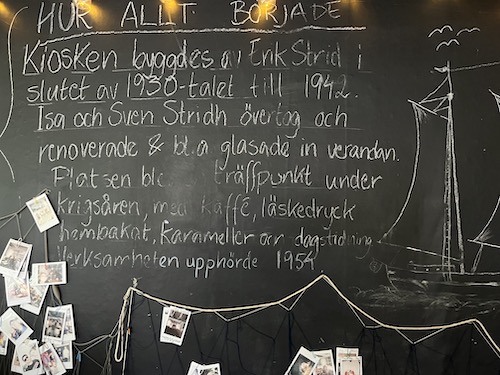 HUR ALLT BÖRJADE
Kiosken byggdes av Erik Strid i
slutet av 1930-talet till 1942.
Isa och Sven Stridh övertog och
renoverade & bl.a glasade in verandan.
Platsen ble träffpunkt under
krigsåren, med kaffe, läskedryck
hembakat, karameller och dagstidning
Verksamheten upphörde 1954